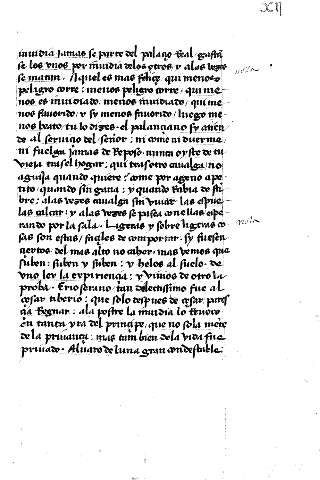 XII
invidia jamas se parte del palaço Real. gastan
se los vnos por invidia de los otros y a las vezes
se matan. Aquel es mas felice qui menor
peligro corre: menos peligro corre, qui me
nos es invidiado. menos invidiado, qui me
nos favorido. y sy menos favorido, luego me
nos beato. tu lo dizes. el palançiano sy atien
de al serviçio del señor: ni come ni duerme,
ni fuelga jamas de Reposo. nunca oyste de tu
vieja tras el hogar: qui tras otro cavalga, no
aguisa quando quiere? come por ageno ape
tito, quando sin gana: y quando Rabia de fam
bre: a las vezes cavalga sin vivar las espue
las calçar: y a las vezes se pasea con ellas espe
rando por la sala. Ligeras y sobre ligeras co
sas son estas, faziles de comportar. sy fuesen
çiertos del mas alto no caher. mas vemos que
suben: suben y suben: y helos al suelo. de
vno ler la expiriençia: y vimos de otro la
proba. Erio seiano tan dilectissimo fue al
çesar tiberio: que solo despues de çesar, pareş
çia Regnar: a la postre la invidia lo Ruovo
en tanta yra del prinçipe, que no sola mente
de la privança: mas tambien de la vida fue
privado. Alvaro de luna gran condestable
nota
nota